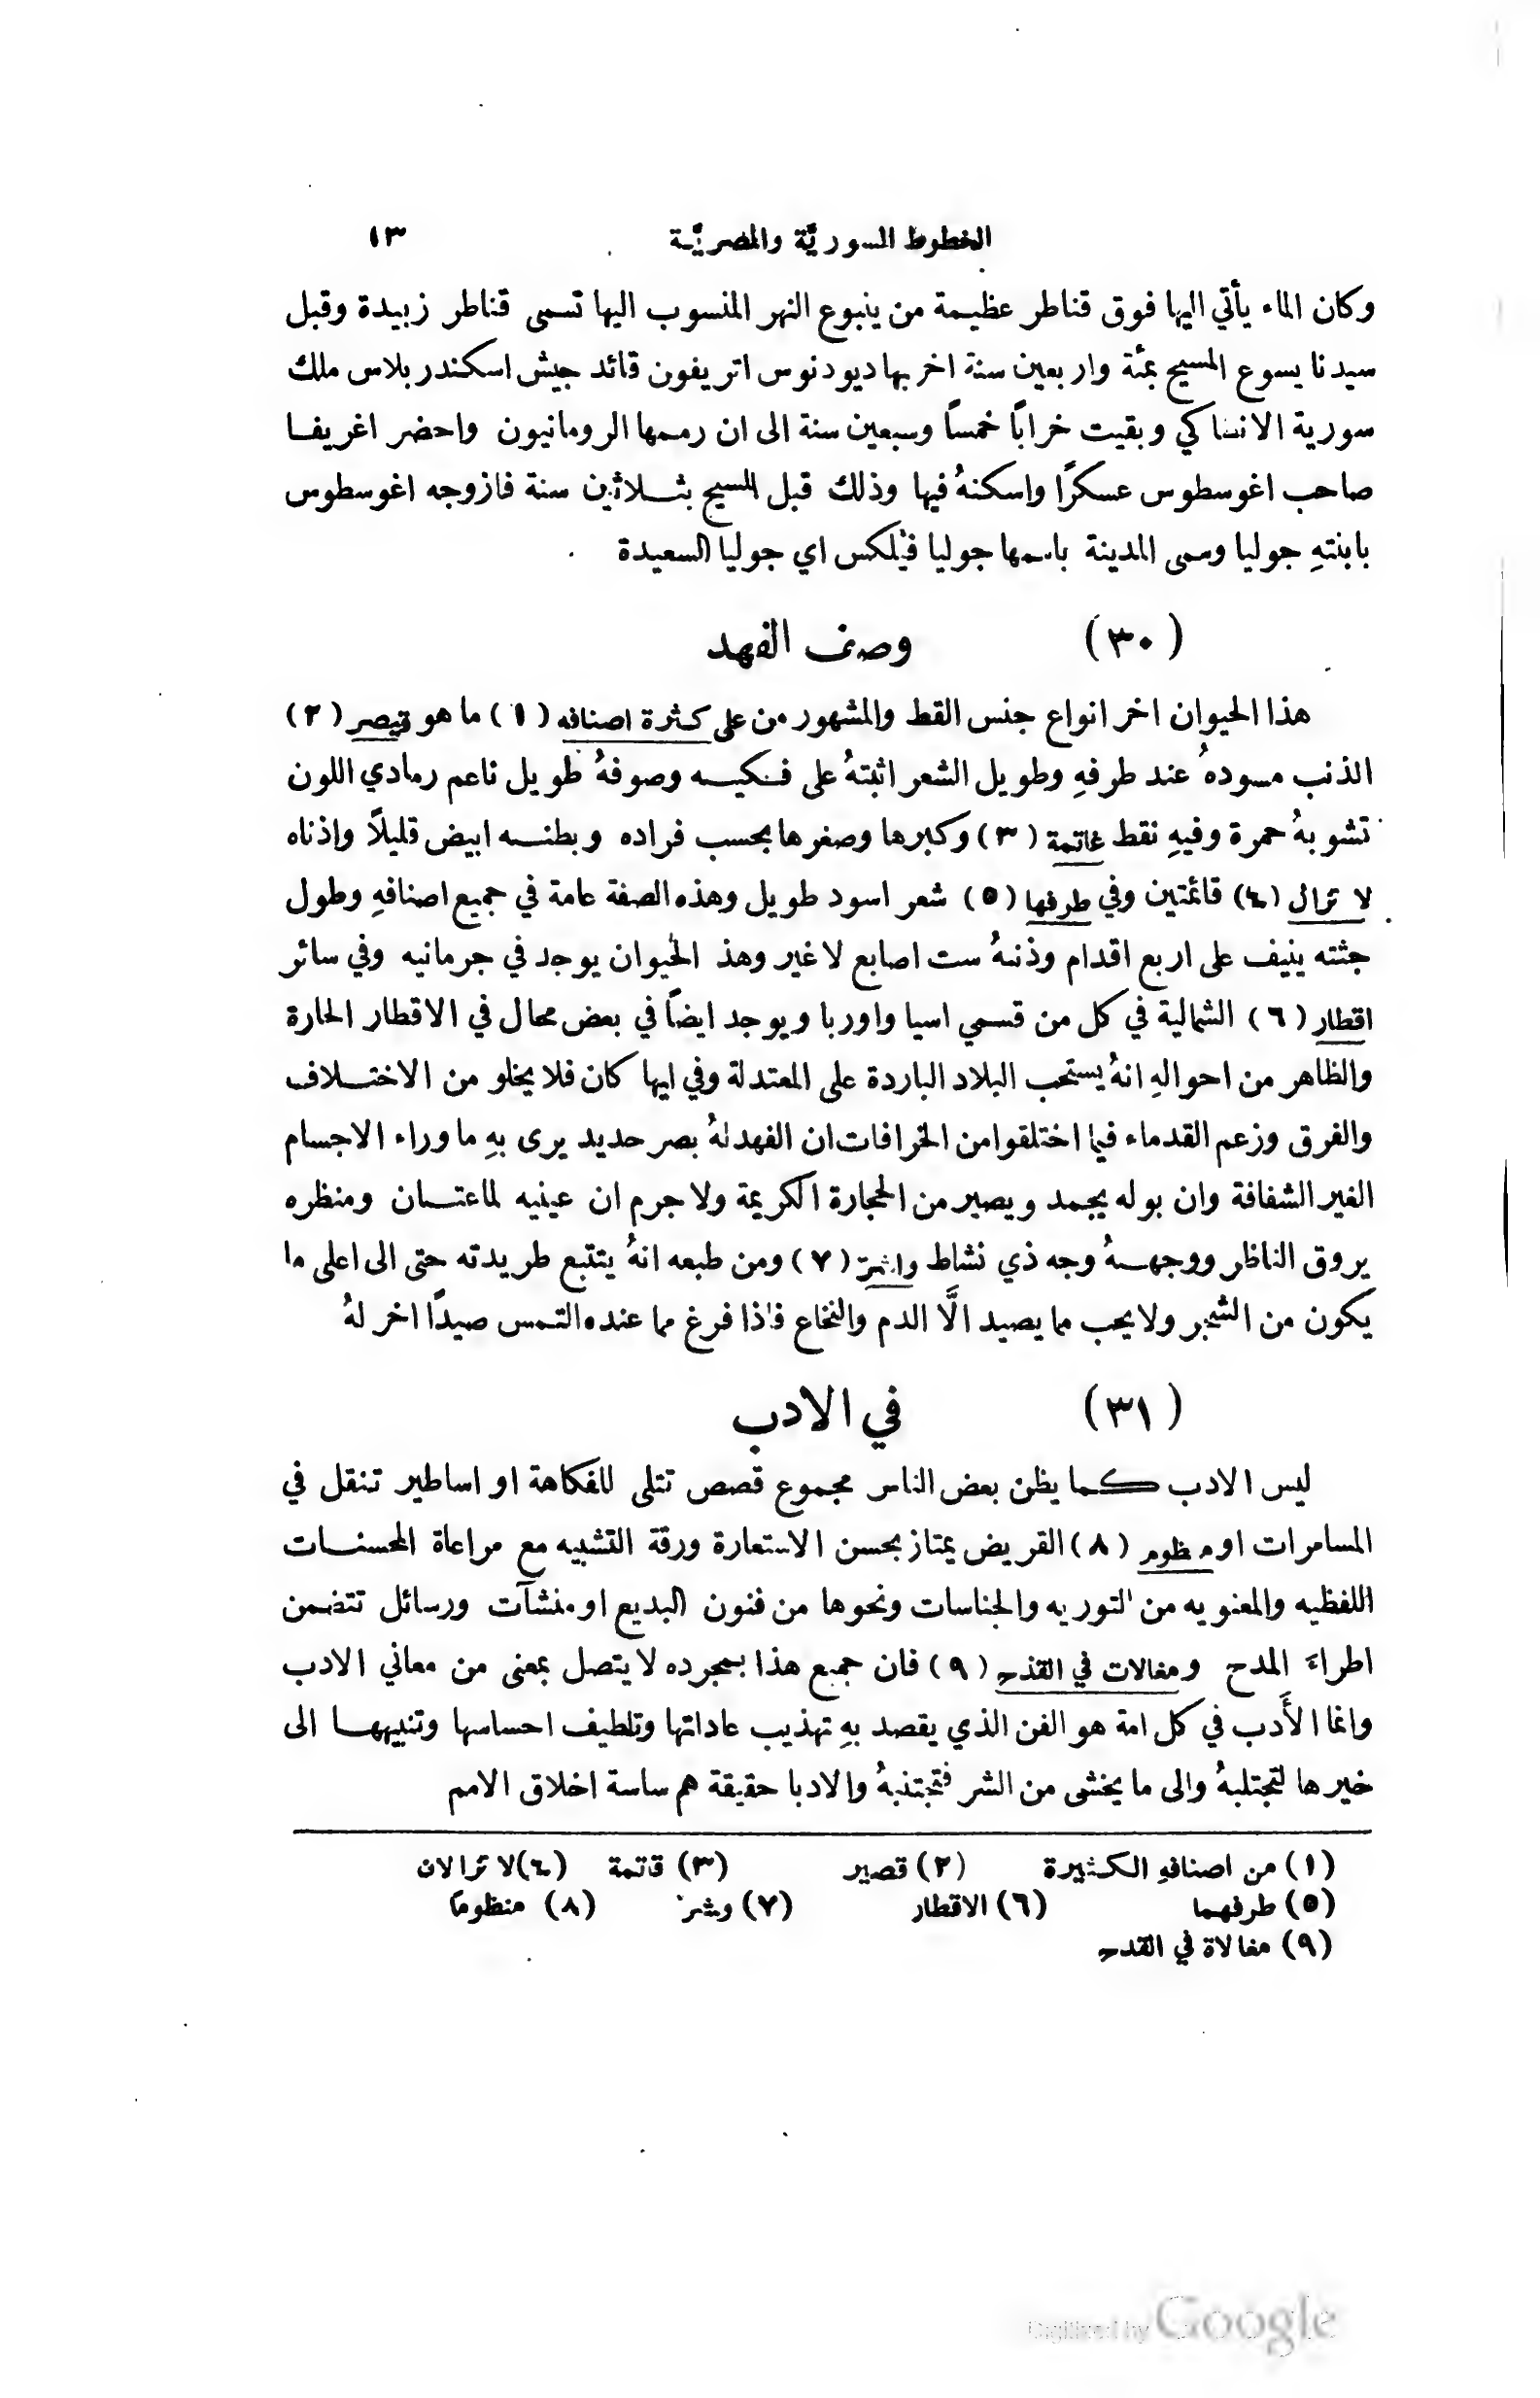 الخطوط السوريَّة والمصريَّة ١٣
وكان الماء يأتي اليها فوق قناطر عظيمة من ينبوع النهر المنسوب اليها تسمى قناطر زبيدة وقبل
سيدنا يسوع المسيح بمئة واربعين سنة اخربها ديودنوس اتريفون قائد جيش اسكندر بلاس ملك
سورية الانطاكي وبقيت خرابًا خمسًا وسبعين سنة الى ان رممها الرومانيون واحضر اغريفا
صاحب اغوسطوس عسكرًا واسكنهُ فيها وذلك قبل المسيح بثلاثين سنة فازوجه اغوسطوس
بابنتهِ جوليا وسمى المدينة باسمها جوليا فيلكس اي جوليا السعيدة
(٣٠) وصف الفهد
هذا الحيوان اخر انواع جنس القط والمشهور من على كثرة اصنافه (١) ما هو قيصر (٢)
الذنب مسودهُ عند طرفهِ وطويل الشعر اثبتهُ على فكيه وصوفهُ طويل ناعم رمادي اللون
تشوبهُ حمرة وفيهِ نقط غاتمة (٣) وكبرها وصغرها بحسب فراده وبطنه ابيض قليلاً واذناه
لا تزال (٤) قائمتين وفي طرفها (٥) شعر اسود طويل وهذه الصفة عامة في جميع اصنافهِ وطول
جثته ينيف على اربع اقدام وذنبهُ ست اصابع لا غير وهذ الحيوان يوجد في جرمانيه وفي سائر
اقطار (٦) الشمالية في كل من قسمي اسيا واوربا ويوجد ايضًا في بعض محال في الاقطار الحارة
والظاهر من احوالهِ انهُ يستحب البلاد الباردة على المعتدلة وفي ايها كان فلا يخلو من الاختلاف
والفرق وزعم القدماء فيما اختلقوا من الخرافات ان الفهد لهُ بصر حديد يرى بهِ ما وراء الاجسام
الغير الشفافة وان بوله يجمد ويصير من الحجارة الكريمة ولا جرم ان عينيه لماعتان ومنظره
يروق الناظر ووجههُ وجه ذي نشاط (٧) ومن طبعه انهُ يتتبع طريدته حتى الى اعلى ما
يكون من الشجر ولا يحب مما يصيد الَّا الدم والنخاع فاذا فرغ مما عنده التمس صيدًا اخر لهُ
(٣١) في الادب
ليس الادب كما يظن بعض الناس مجموع قصص تتلى للفكاهة او اساطير تنقل في
المسامرات او منظوم (٨) القريض يمتاز بحسن الاستعارة ورقة التشبيه مع مراعاة المحسنات
اللفظيه والمعنويه من التوريه والجناسات ونحوها من فنون البديع او منشآت ورسائل تتضمن
اطراءَ المدح ومغالات في القذح (٩) فان جميع هذا بمجرده لا يتصل بمعنى من معاني الادب
وانما الأَدب في كل امة هو الفن الذي يقصد بهِ تهذيب عاداتها وتلطيف احساسها وتنبيهها الى
خيرها لتجتلبهُ والى ما يخشى من الشر فتجتنبهُ والادبا حقيقة هم ساسة اخلاق الامم
(١) من اصنافهِ الكثيرة (٢) قصير (٣) قاتمة (٤) لا تزالان
(٥) طرفهما (٦) الاقطار (٧) (٨) منظومًا
(٩) مغالاة في القدح
Digitized by Google